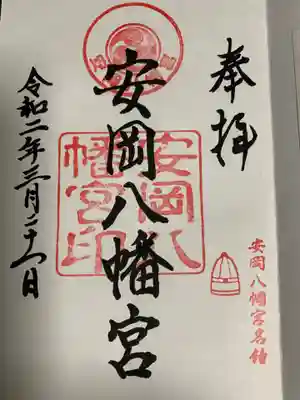 奉拝
安岡八幡宮
安岡八
幡宮印
令和二年三月二十一日
安岡八幡宮名鐘